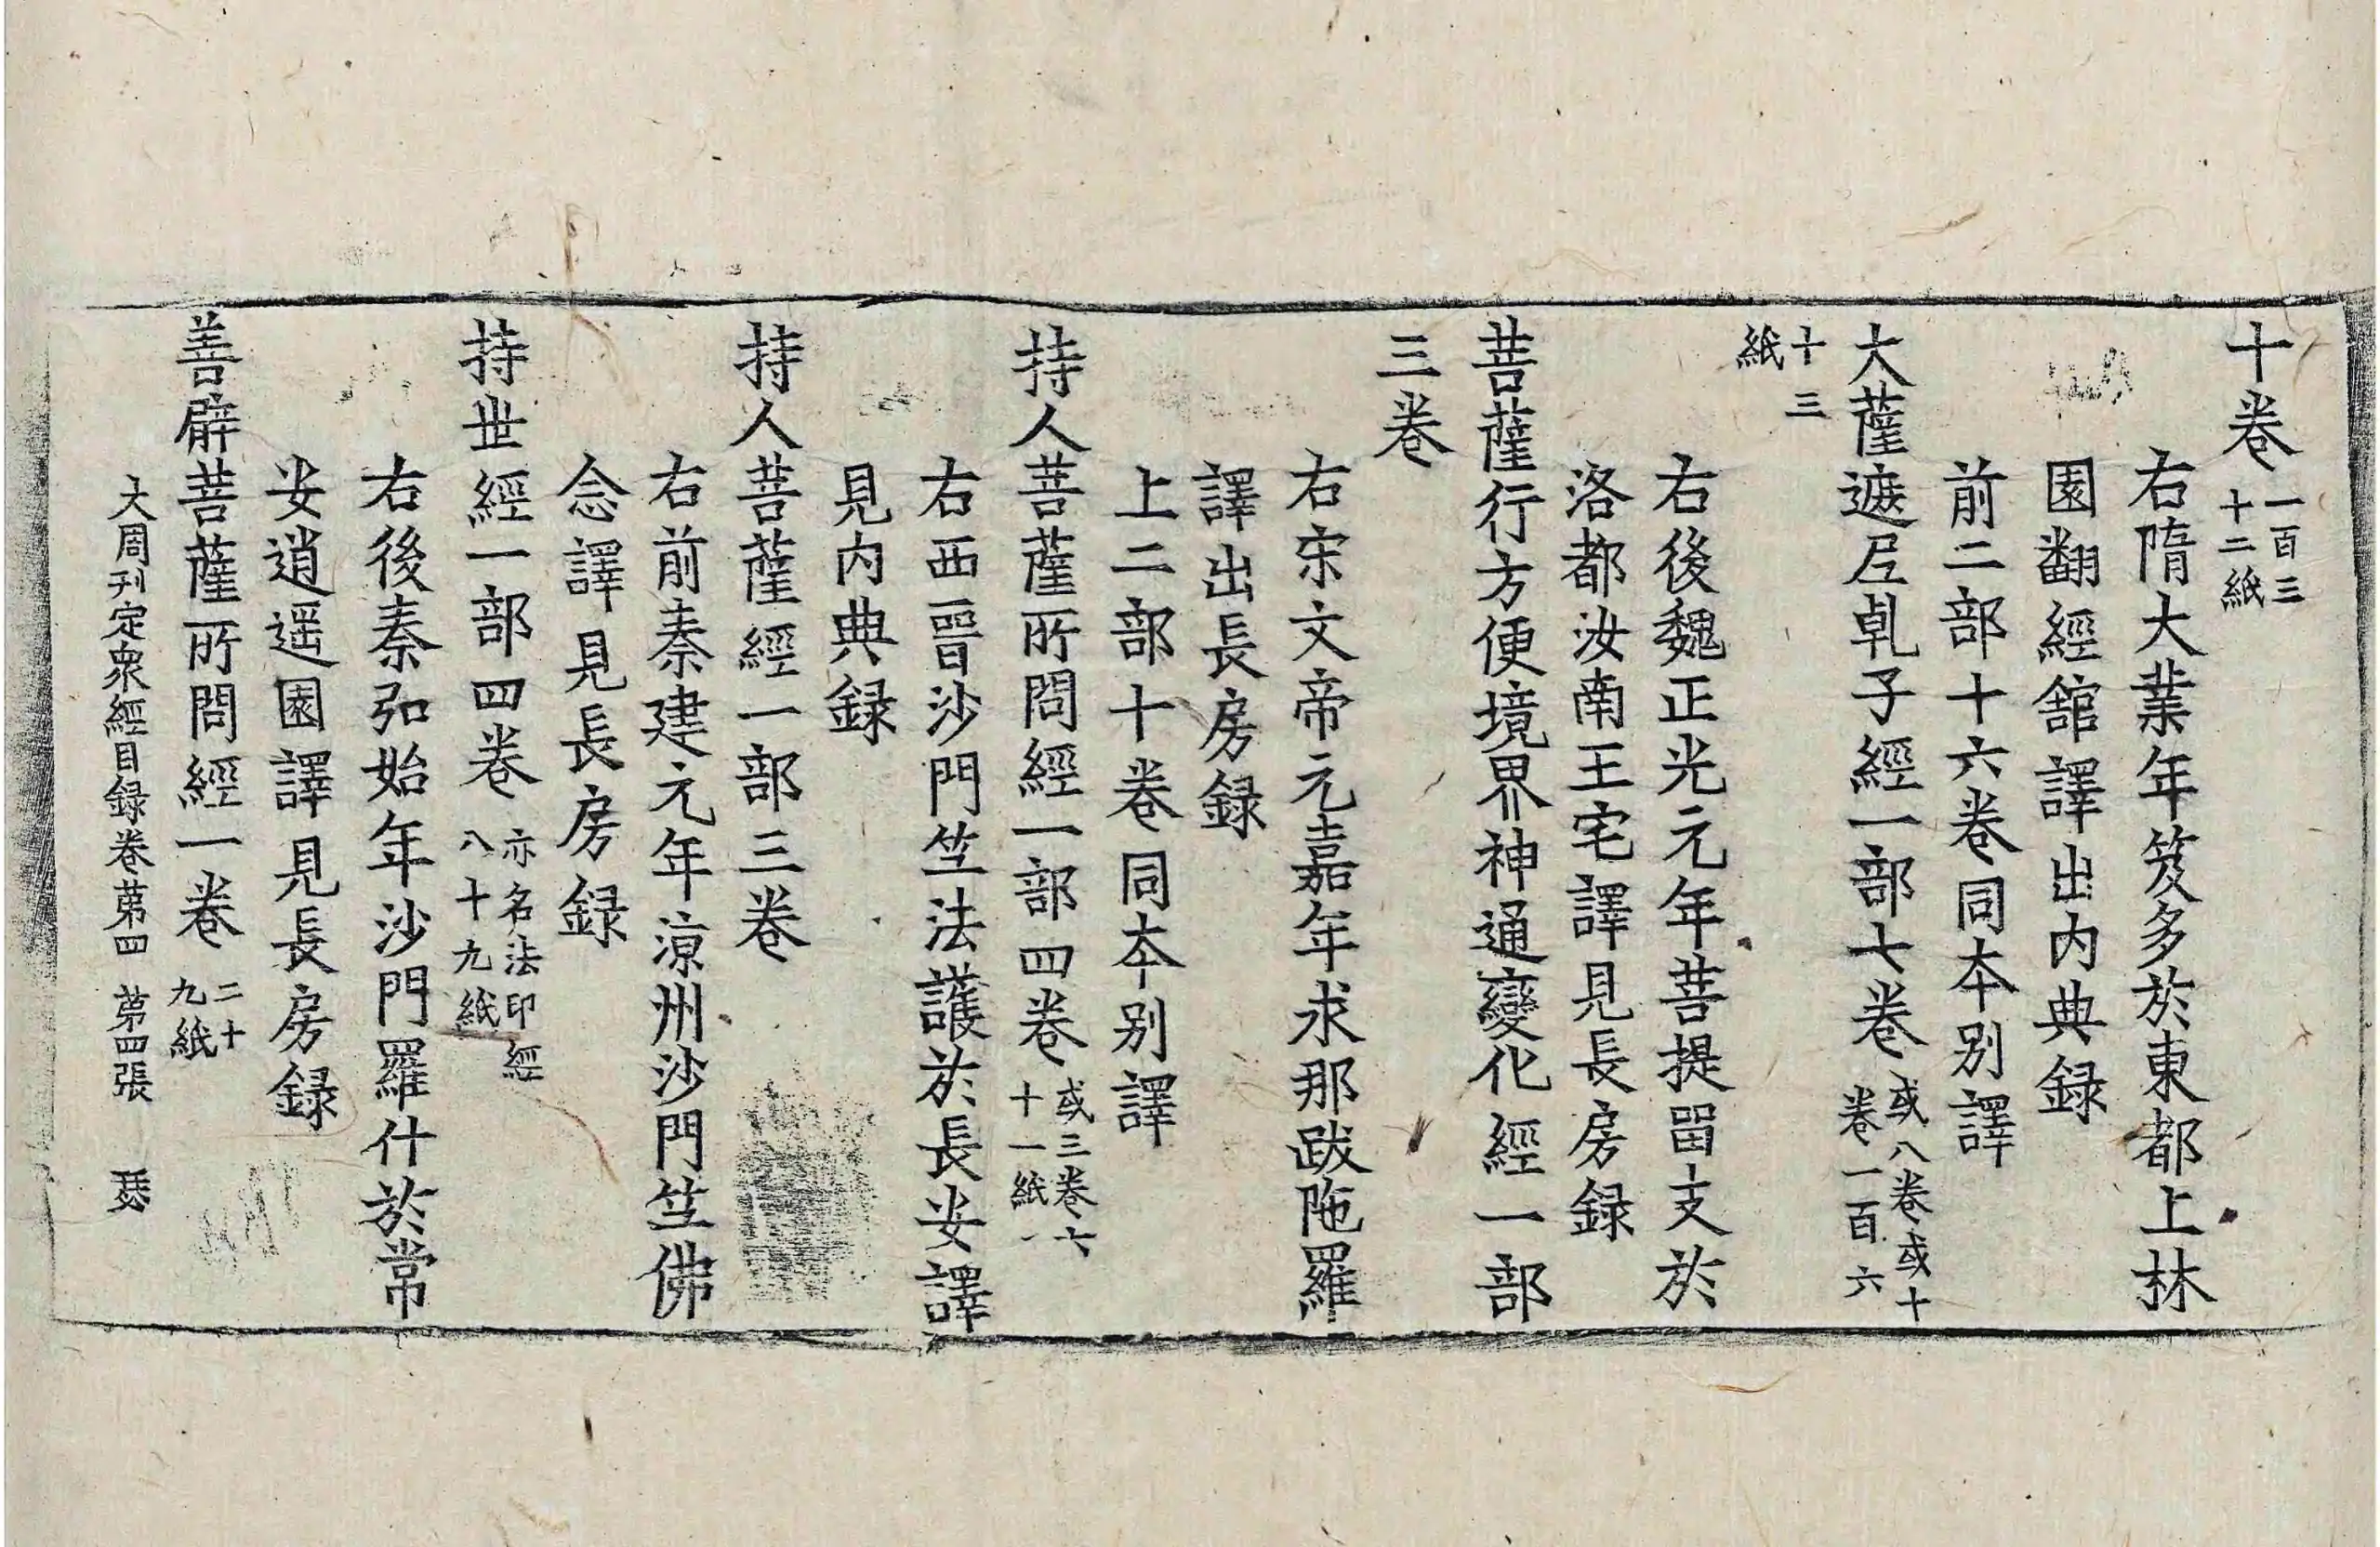 十卷一百三十二紙
右隋大業年笈多於東都上林
園翻經館譯出内典録
前二部十六卷同夲別譯
大薩遮𡰱乹子經一部七卷或八卷或十卷一百六
十三紙
右後魏正光元年菩提畱支於
洛都汝南王宅譯見長房録
菩薩行方便境界神通變化經一部
三卷
右宋文帝元嘉年求那跋陁羅
譯出長房録
上二部十卷同夲別譯
持人菩薩所問經一部四卷或三卷六十一紙
右西晉沙門竺法護於長安譯
見内典録
持人菩薩經一部三卷
右前秦建元年涼州沙門竺佛
念譯見長房録
持世經一部四卷亦名法印經八十九紙
右後秦弘始年沙門羅什於常
安逍遥園譯見長房録
善臂菩薩所問經一卷二十九紙
大周刊定衆經目録卷苐四 苐四張 瑟